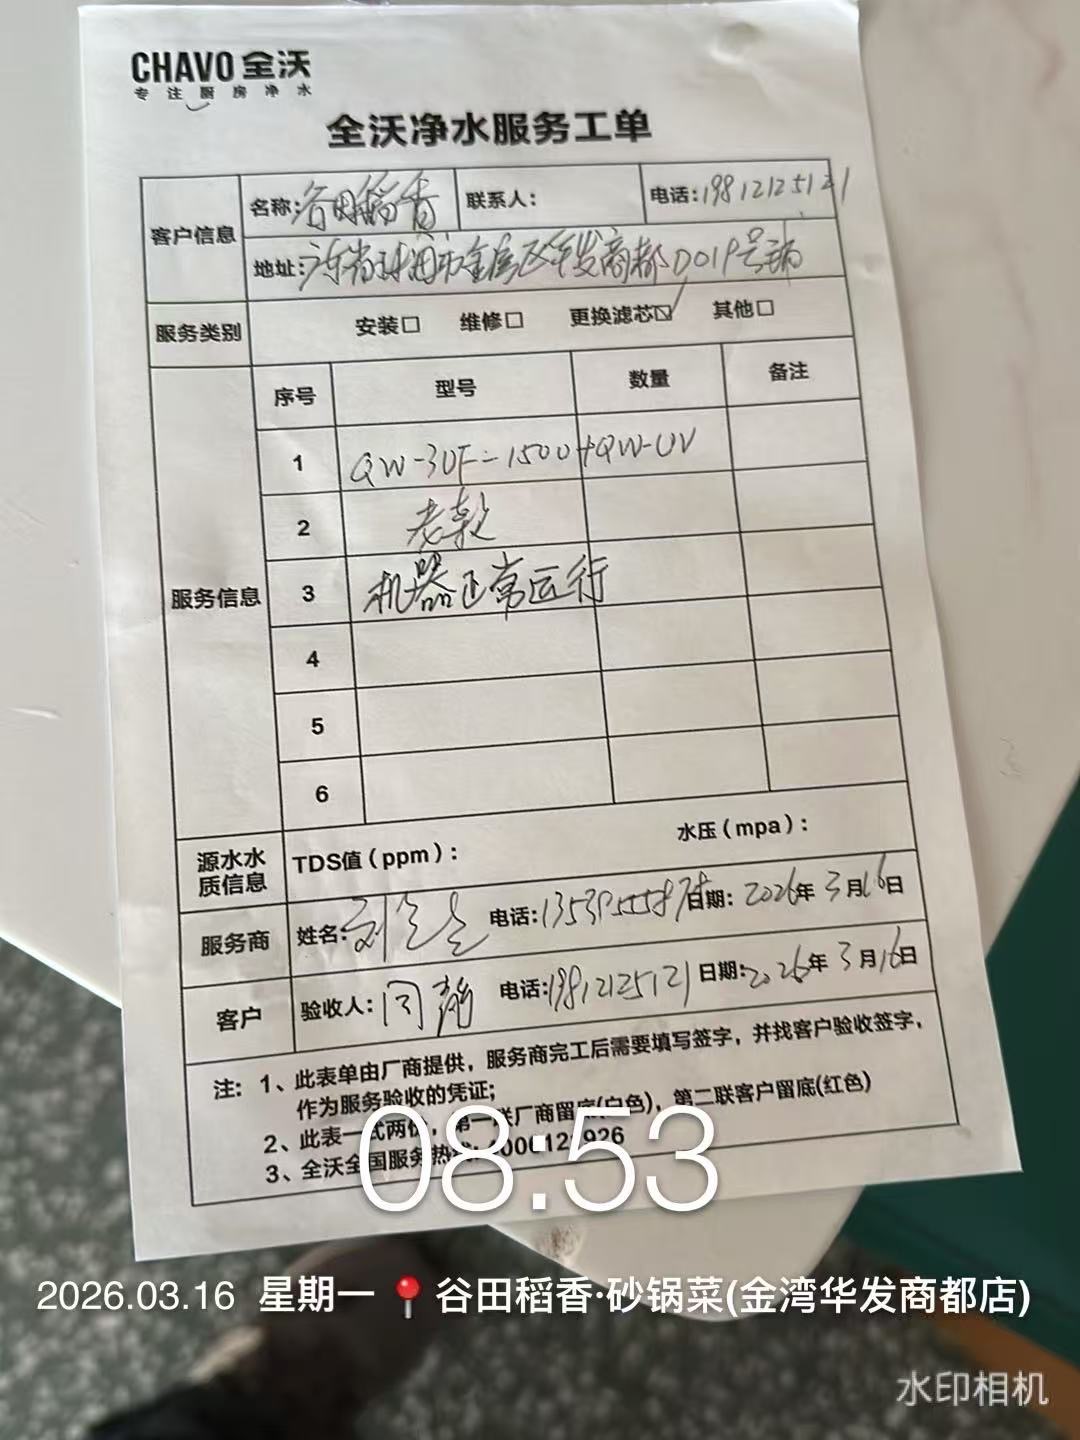 CHAVO 全沃
专注厨房净水
全沃净水服务工单
客户信息 名称:谷田稻香 联系人: 电话:19812125121
地址:广东省珠海市金湾区华发商都D019号铺
服务类别 安装□ 维修□ 更换滤芯☑ 其他□
服务信息 序号 型号 数量 备注
1 QW-3UF-1500+QW-UV
2 老款
3 机器正常运行
4
5
6
源水水质信息 TDS值(ppm): 水压(mpa):
服务商 姓名:刘 电话: 日期:2026年3月16日
客户 验收人:闫静 电话:19812125121 日期:2026年3月16日
注: 1、此表单由厂商提供,服务商完工后需要填写签字,并找客户验收签字,
作为服务验收的凭证;
2、此表一式两份,第一联厂商留底(白色),第二联客户留底(红色)
3、全沃全国服务热线:
08:53
2026.03.16 星期一 谷田稻香·砂锅菜(金湾华发商都店)
水印相机